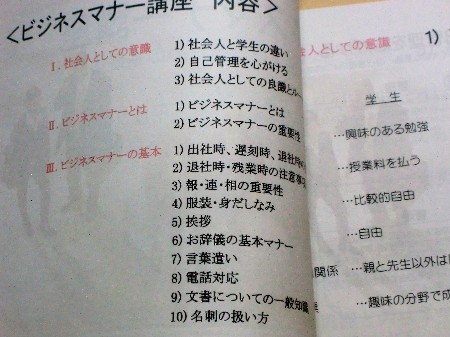 ＜ビジネスマナー講座 内容＞
Ⅰ. 社会人としての意識
1) 社会人と学生の違い
2) 自己管理を心がける
3) 社会人としての良識とル
Ⅱ. ビジネスマナーとは
1) ビジネスマナーとは
2) ビジネスマナーの重要性
Ⅲ. ビジネスマナーの基本
1) 出社時、遅刻時、退社時
2) 退社時・残業時の注意事
3) 報・連・相の重要性
4) 服装・身だしなみ
5) 挨拶
6) お辞儀の基本マナー
7) 言葉遣い
8) 電話対応
9) 文書についての一般知識
10) 名刺の扱い方
会人としての意識
1)
学 生
…興味のある勉強
…授業料を払う
…比較的自由
…自由
関係 …親と先生以外は
…趣味の分野で成